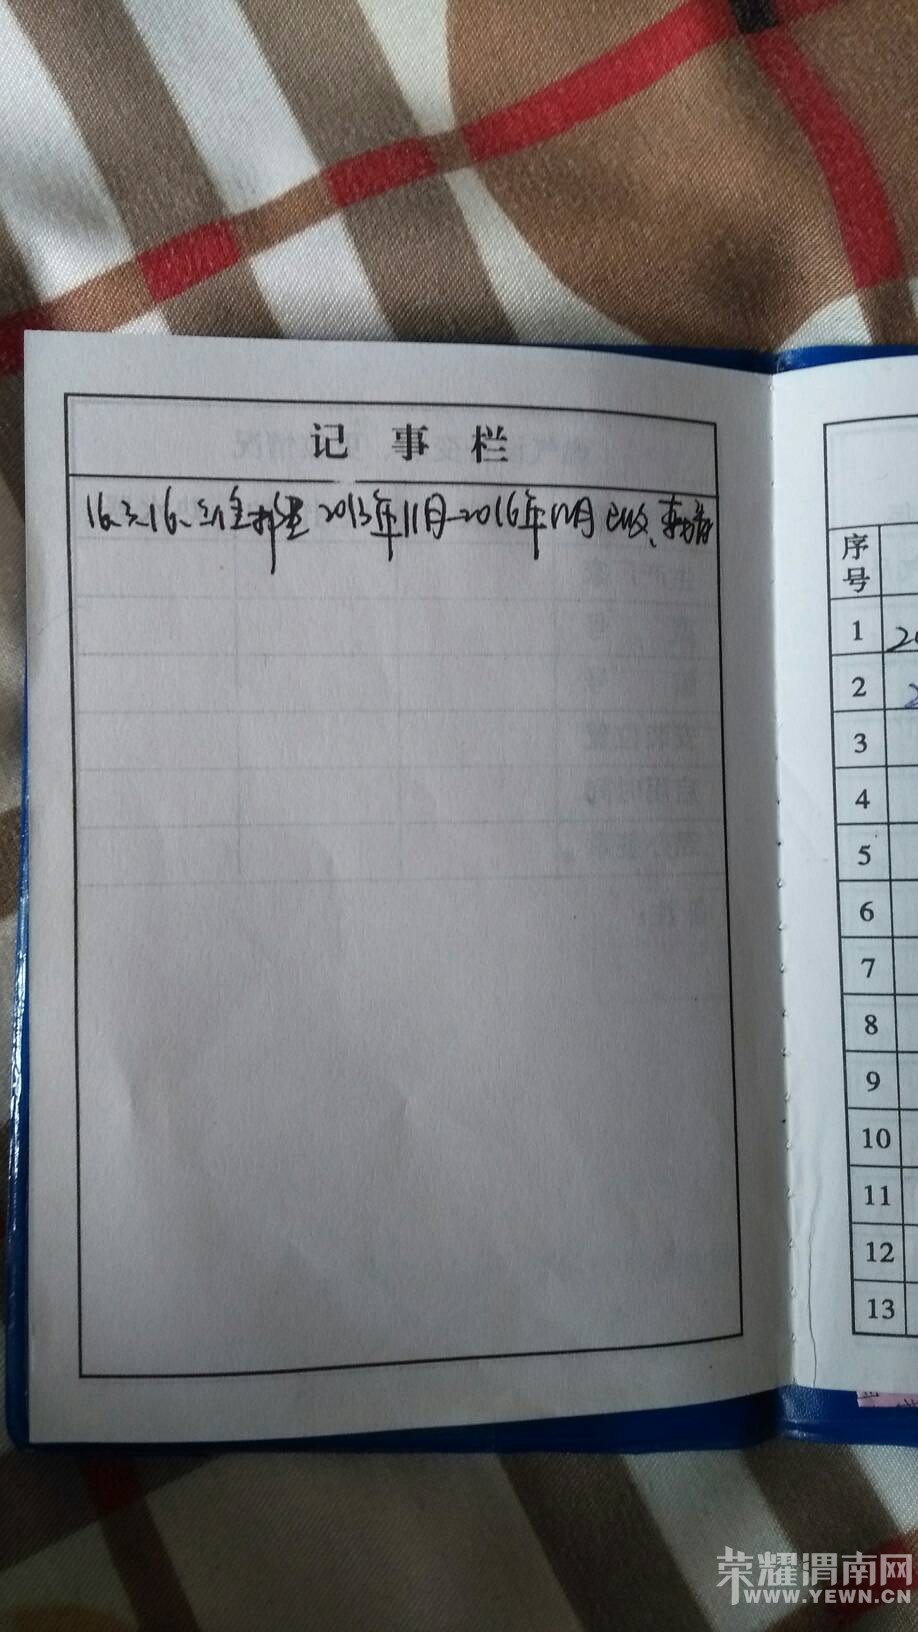 记事栏
16.3.16. 2015年11月-2016年12月已收、
序号
1
2
3
4
5
6
7
8
9
10
11
12
13
荣耀渭南网
WWW.YEWN.CN